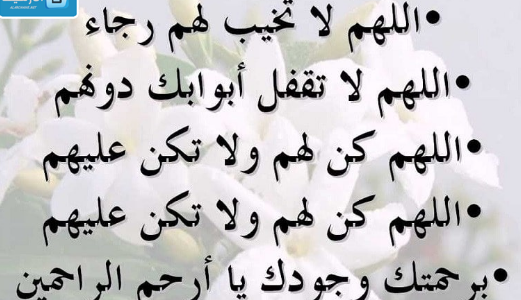 •اللهم لا تخيب لهم رجاء
•اللهم لا تقفل أبوابك دونهم
•اللهم كن لهم ولا تكن عليهم
•اللهم كن لهم ولا تكن عليهم
•برحمتك وجودك يا أرحم الراحمين